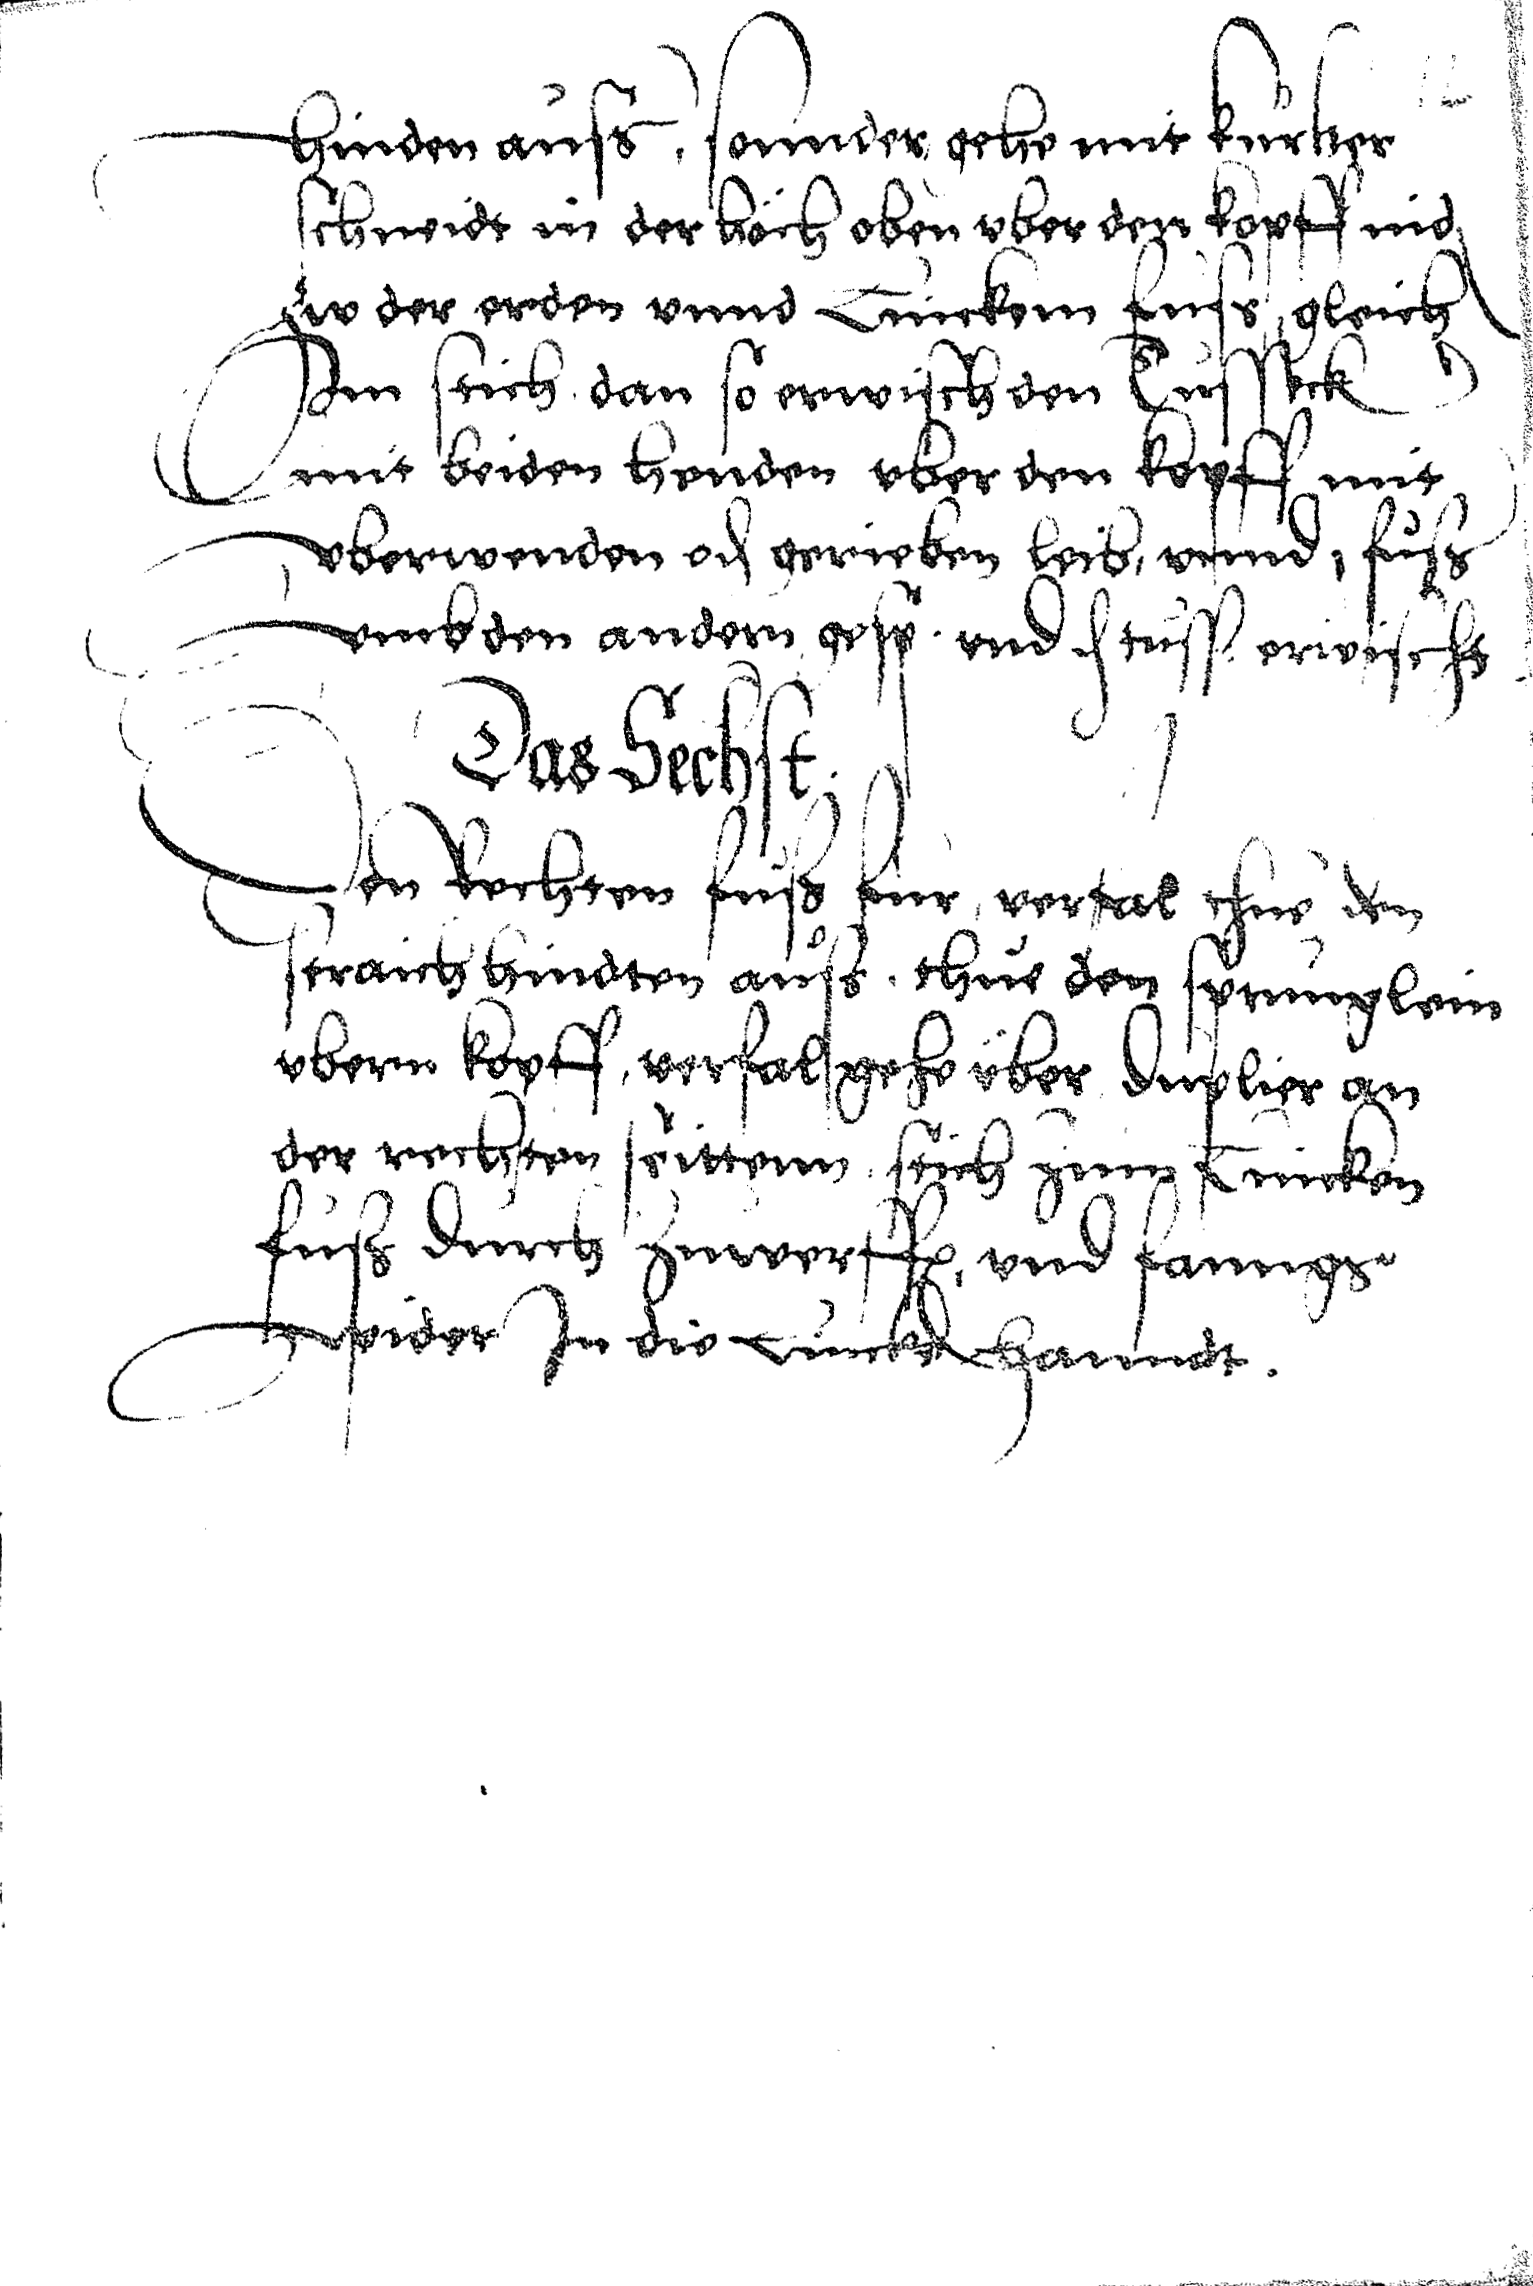 hinden auß, sonnder gehe mit kurtzer
schneidt in der höch oben vber den kopff nid
zu der erden vnnd Lincken fuß, gleich
Im stich. dan so erwisch den
mit beiden henden vber den kopff mit
vberwenden leib, vnnd, fuß
vmb den andern vnd erwischt
Das Sechst.
Den Rechten fuß fur, verfal den
straich hindten auß. thue den sprunglein
vbern kopff, verfal gehe über duplier an
der rechten seittenn. stich zum Lincken
fuß durch vnd fanngs
wider In die Linckh Hanndt.